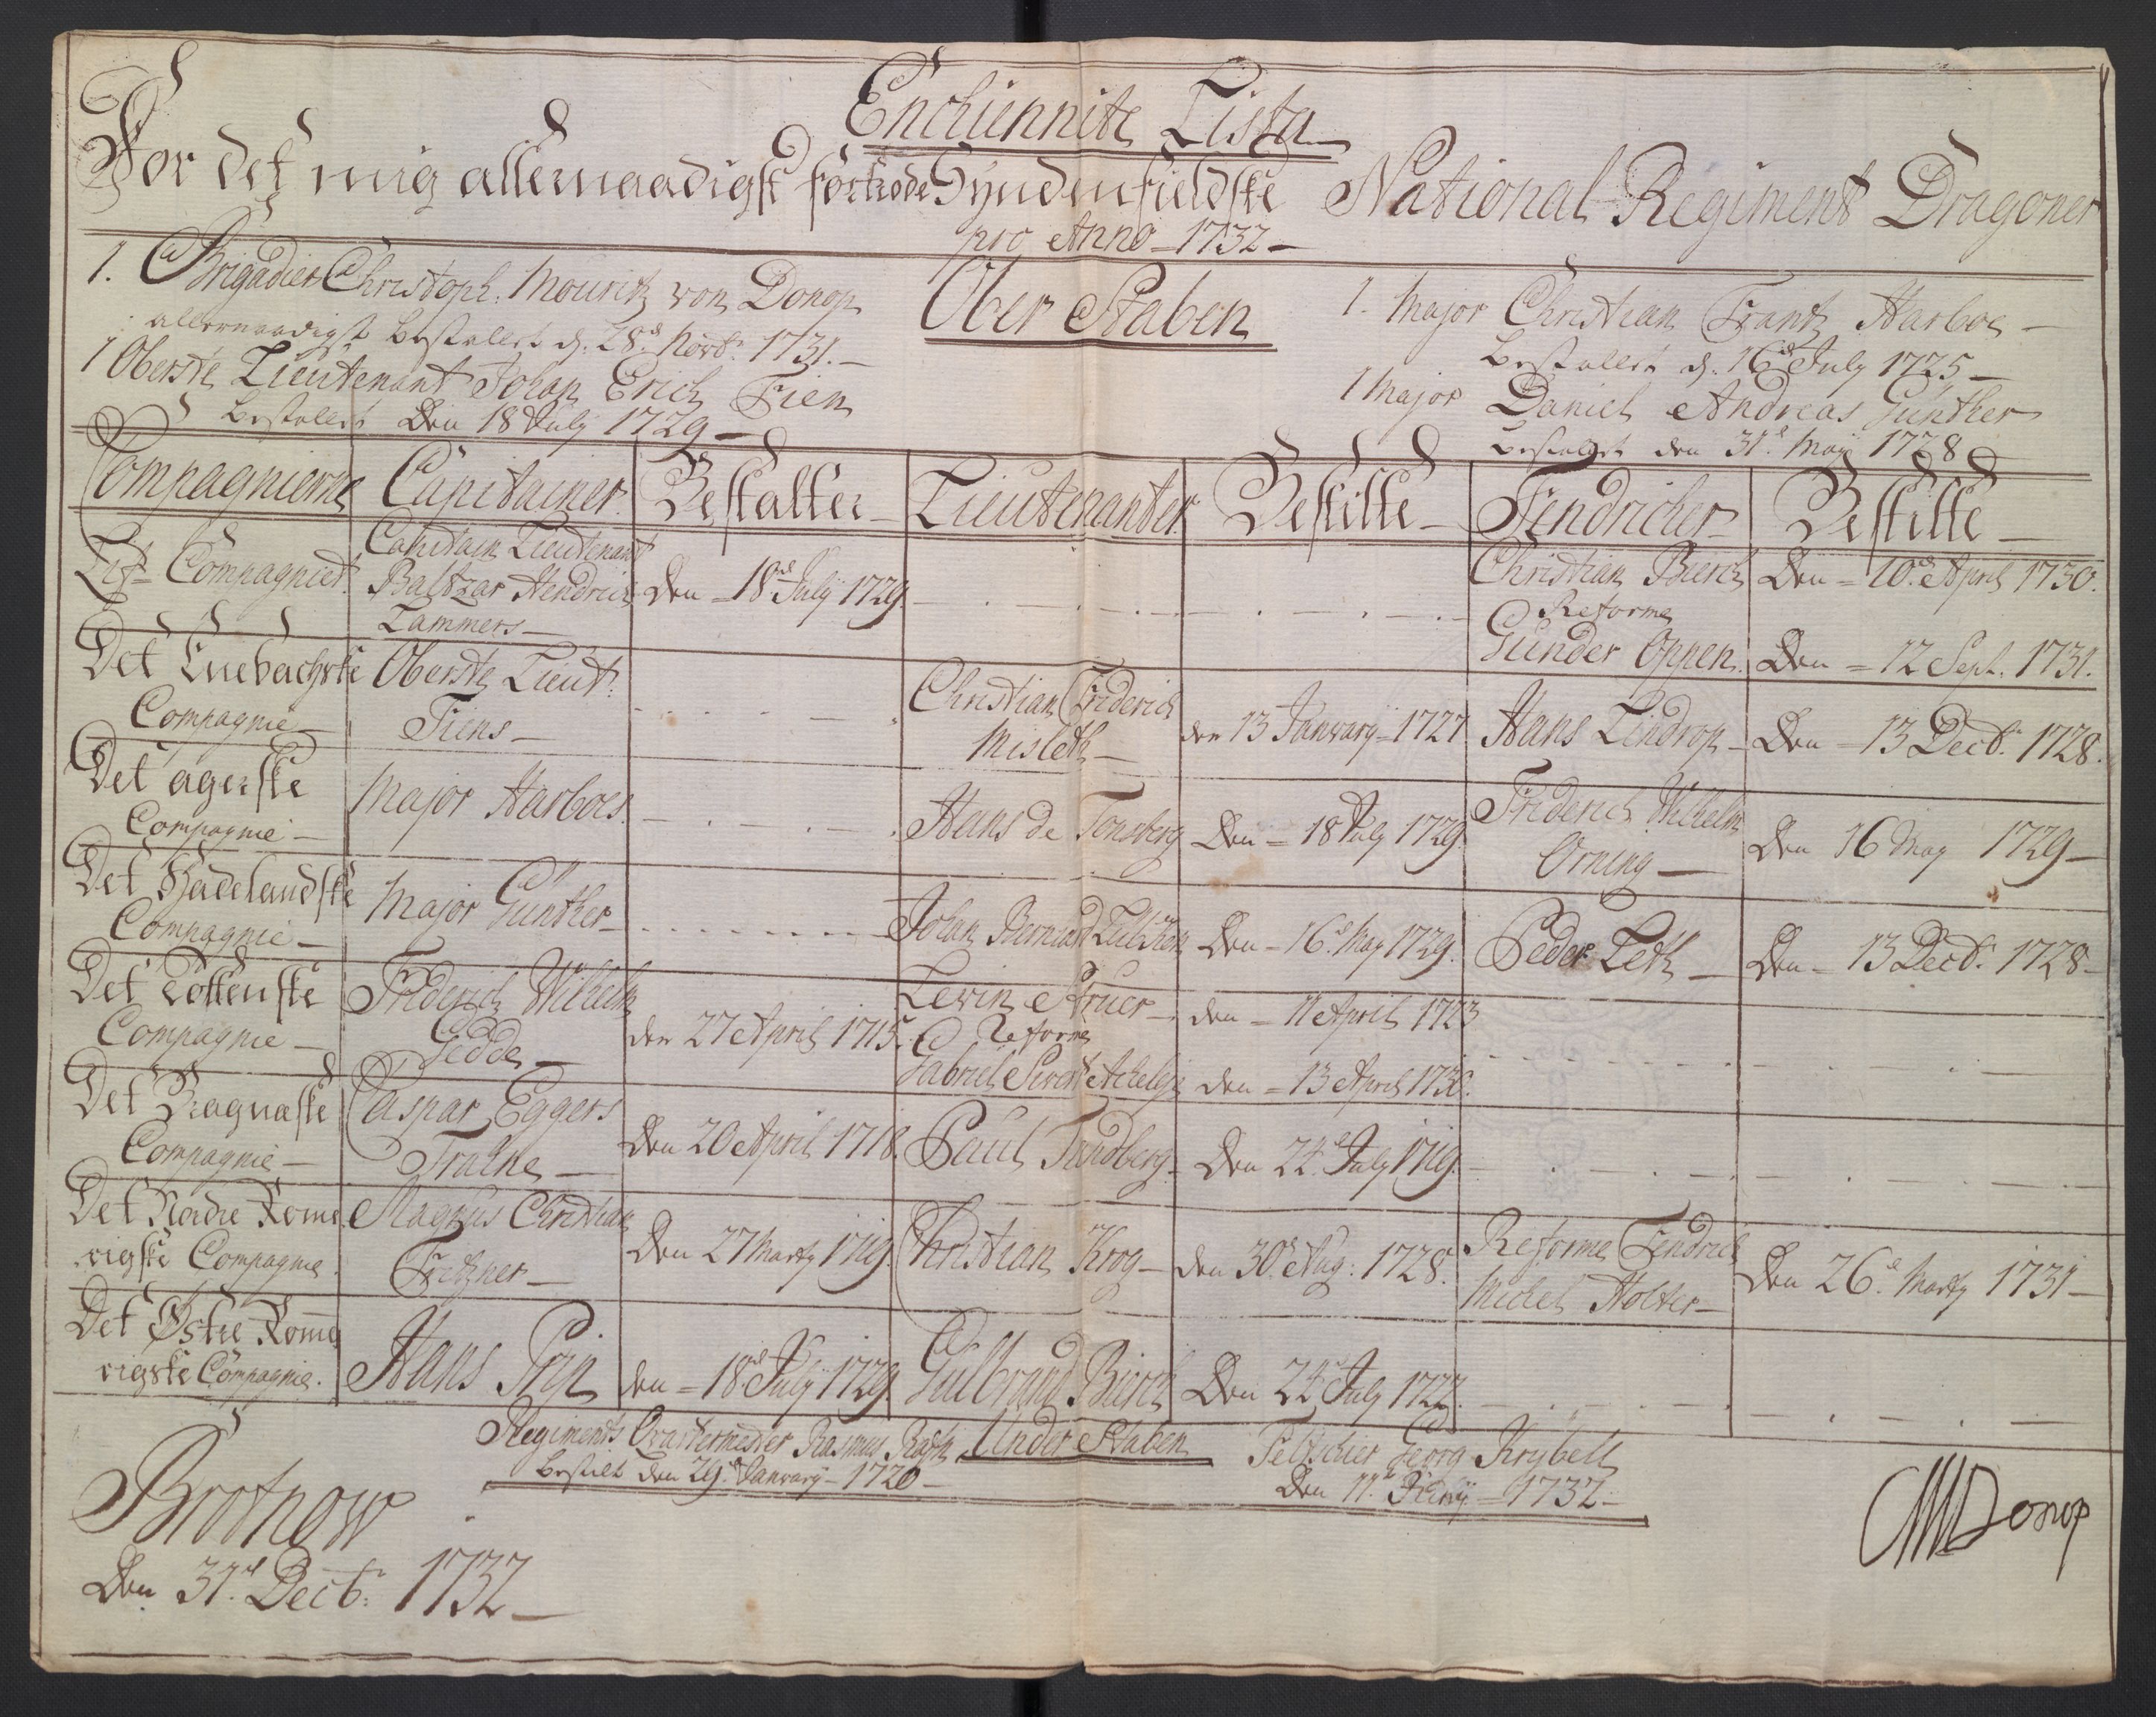 Anciennite Lista
For det mig allernaadigst fortrode Syndenfieldske National Regiment Dragoner
pro Anno 1732
Ober Staben
1. Brigadier Christoph: Mouritz von Donop
allernaadigst bestallet d: 28d Novb: 1731.
1 Oberste Lieutenant Johan Erich Fien
bestallet den 18 July 1729
1. Major Christian Frantz Harboe
bestallet d: 16d July 1725
1 Major Daniel Andreas Günther
bestallet den 31d Maÿ 1728
Compagnierne Capitainer Bestalter Lieutenanter Bestilte Fendricher Bestilte
Lif Compagniet.
Capitain Lieutenant
Baltzar Hendrich
Lammers
Den 18d July 1729
Christian Bierch
Den 10d April 1730.
Reforme
Günder Oppen.
Den 12 Sept. 1731.
Det Enebachske
Compagnie
Oberste Lieut:
Fiens
Christian Friderich
Misleth
den 13 January 1727
Hans Lindrop
Den 13 Decb: 1728.
Det agerske
Compagnie
Major Harboes.
Hans de Tonsberg
Den 18 July 1729.
Friderich Wilhelm
Orning
Den 16 May 1729
Det Hadelandske
Compagnie
Major Günther
Johan Bernhard
Den 16d May 1729.
Peder Leth
Den 13 Decb: 1728
Det Tottenske
Compagnie
Friderich Wilhelm
Gedde
den 27 April 1715.
Lewin Struer
den 11 April 1723
Reforme
Gabriel Sivert
den 13 April 1730.
Det Bragnæske
Compagnie
Caspar Eggers
Trane
Den 20 April 1718.
Paul
Den 24d July 1719.
Det Nordre Rome
rigske Compagnie
Magnus Christian
Fritzner
Den 27 Marty 1719.
Christian Krog
den 30d Aug: 1728.
Reforme Fendrich
Michel Holter
Den 26d Marty 1731
Det Østre Rome
rigske Compagnie.
Hans
den 18d July 1729.
Gulbrand Bierch
Den 24d July 1722.
Under Staben
Regiments Qvartermester Rasmus
bestilt den 29d January 1720
Feltskier Georg Krybell
Den 11d 1732
Brotnow
Den 31d Decb: 1732
CMVDonop